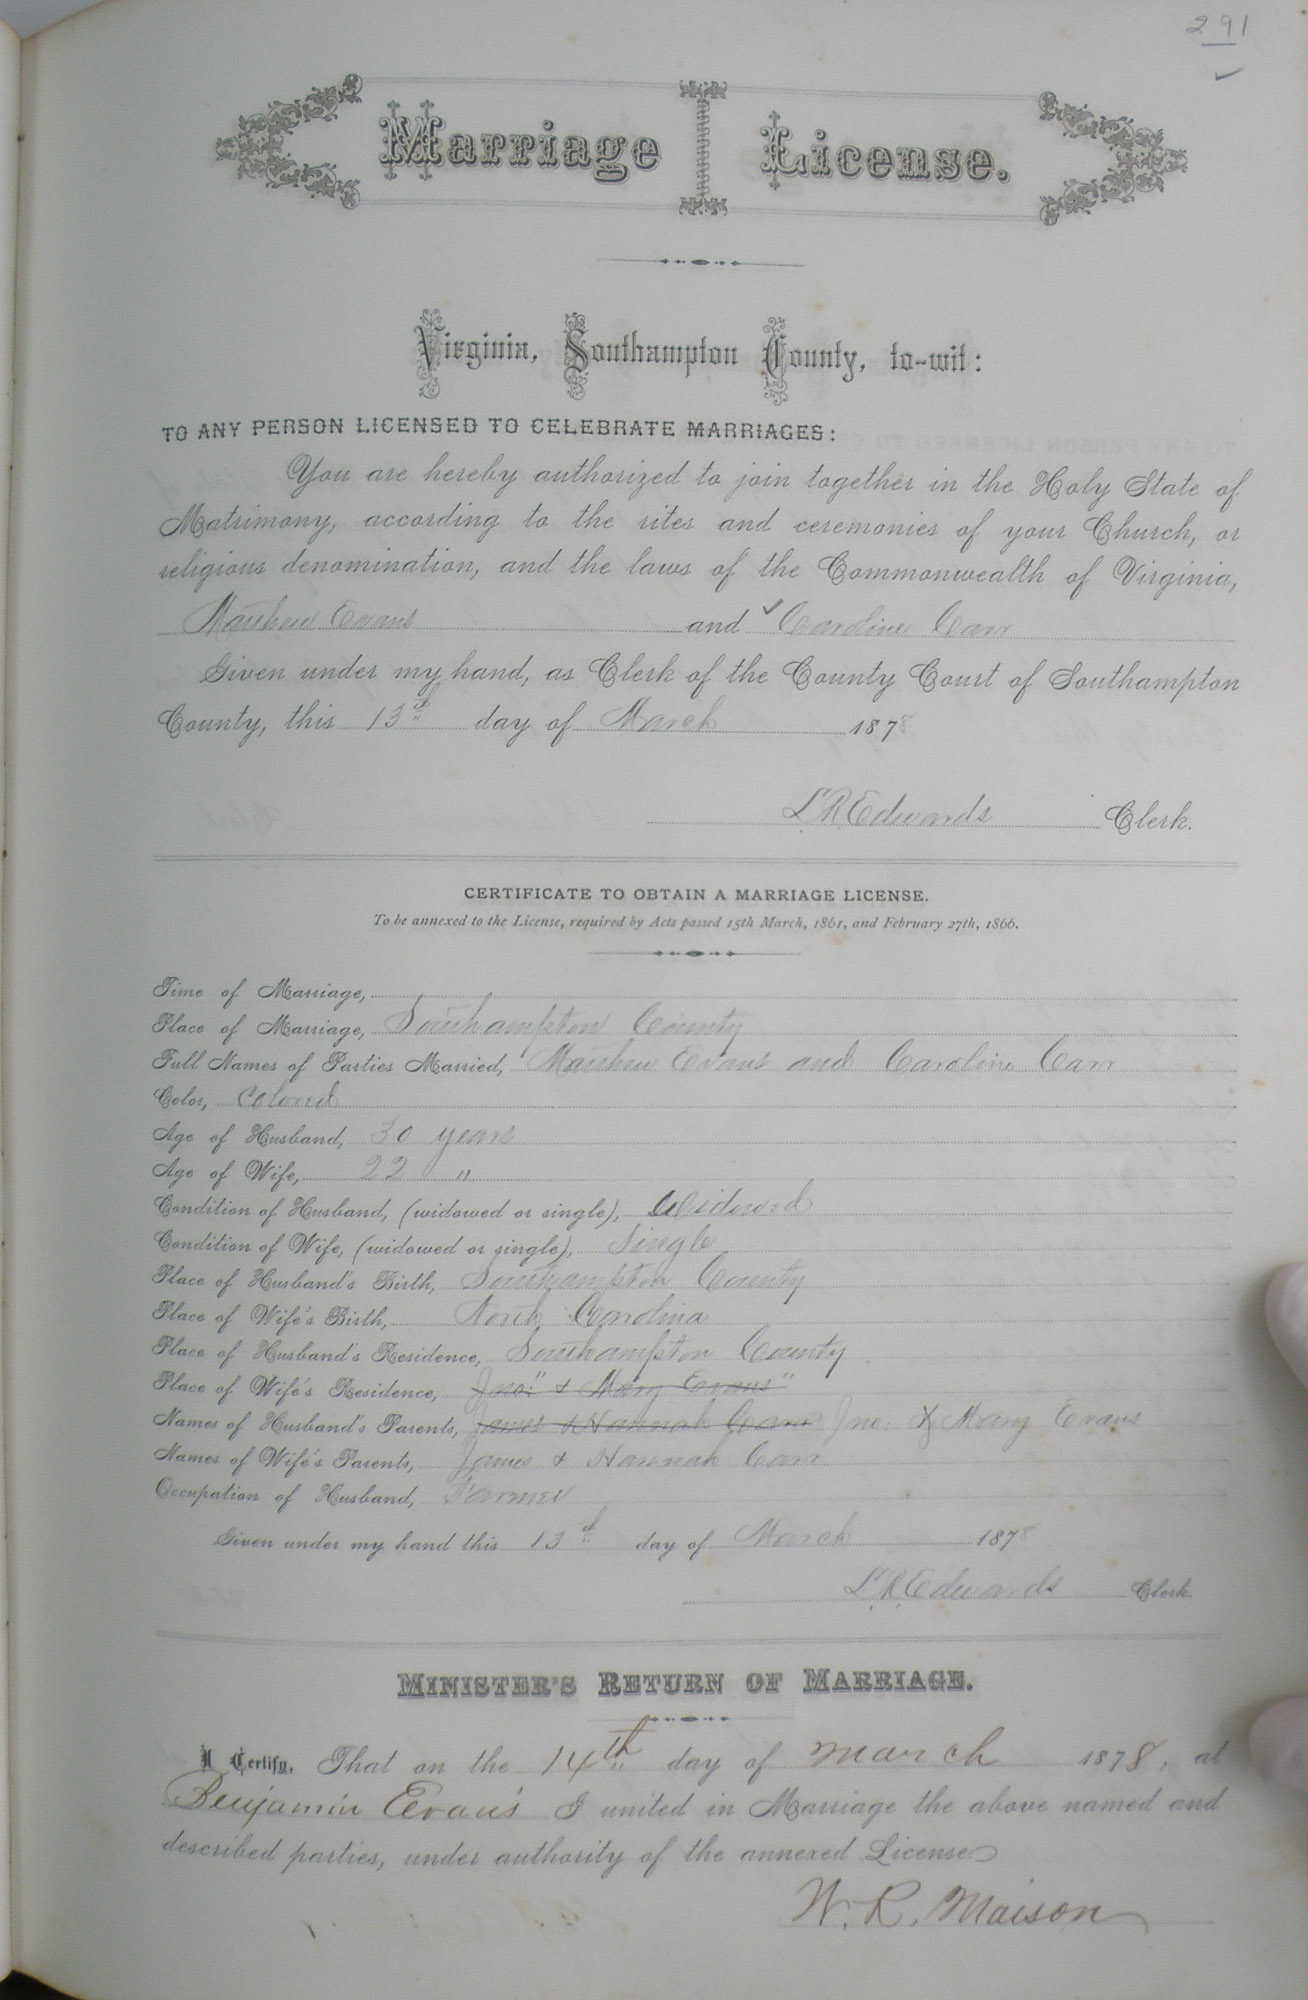 291
Marriage License.
Virginia, Southampton County, to-wit:
TO ANY PERSON LICENSED TO CELEBRATE MARRIAGES:
You are hereby authorized to join together in the Holy State of
Matrimony, according to the rites and ceremonies of your Church, or
religious denomination, and the laws of the Commonwealth of Virginia,
Matthew Evans and Caroline Carr
Given under my hand, as Clerk of the County Court of Southampton
County, this 13th day of March 1878
L R Edwards Clerk.
CERTIFICATE TO OBTAIN A MARRIAGE LICENSE.
To be annexed to the License, required by Acts passed 15th March, 1861, and February 27th, 1866.
Time of Marriage,
Place of Marriage, Southampton County
Full Names of Parties Married, Matthew Evans and Caroline Carr
Color, Colored
Age of Husband, 30 years
Age of Wife, 22 "
Condition of Husband, (widowed or single), Widowed
Condition of Wife, (widowed or single), Single
Place of Husband's Birth, Southampton County
Place of Wife's Birth, North Carolina
Place of Husband's Residence, Southampton County
Place of Wife's Residence, Jno: " & Mary Evans "
Names of Husband's Parents, James & Hannah Carr Jno. & Mary Evans
Names of Wife's Parents, James & Hannah Carr
Occupation of Husband, Farmer
Given under my hand this 13th day of March 1878
L R Edwards Clerk.
MINISTER'S RETURN OF MARRIAGE.
I Certify, That on the 14th day of March 1878, at
Benjamin Evans I united in Marriage the above named and
described parties, under authority of the annexed License
W. R. Maison